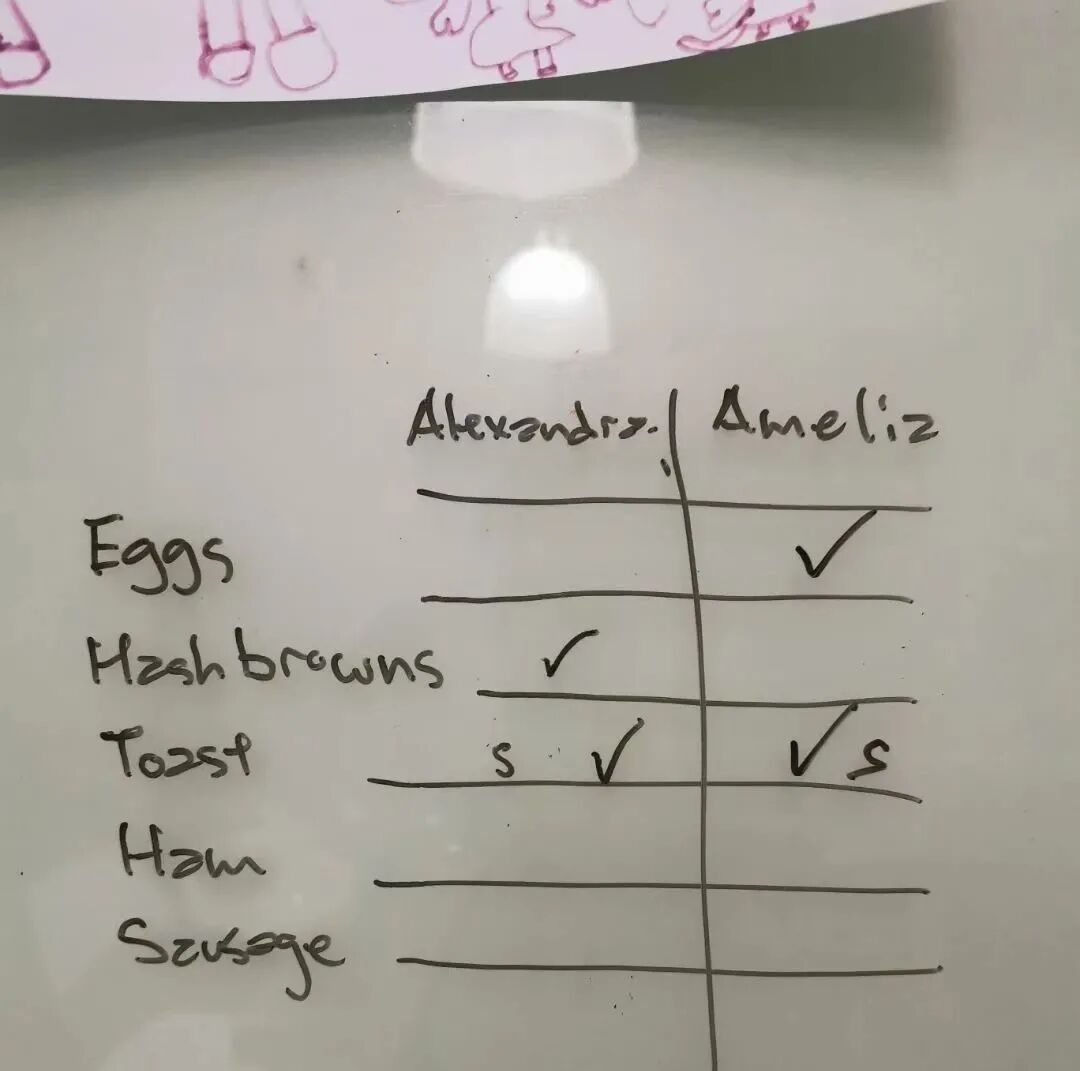 Alexandra Amelia
Eggs ✓
Hashbrowns ✓
Toast s ✓ ✓ s
Ham
Sausage